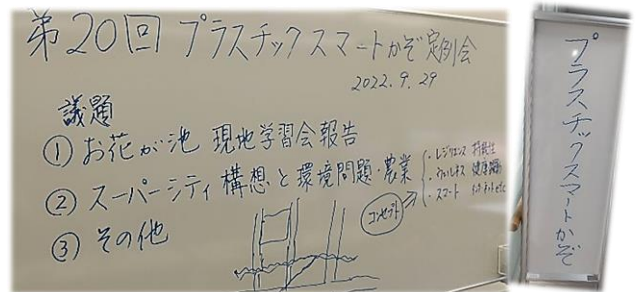 第20回 プラスチックスマートかぞ定例会
2022.9.29
議題
① お花が池 現地学習会報告
② スーパーシティ構想と環境問題・農業
コンセプト
・レジリエンス 持続性
・ウェルネス 健康
・スマート
③ その他
プラスチックスマートかぞ